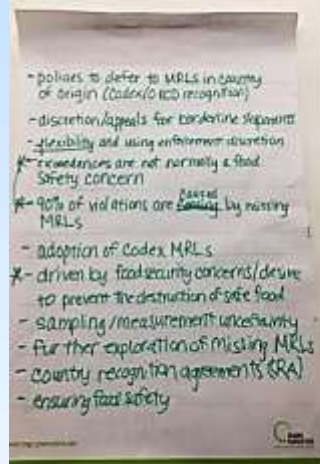 - policies to defer to MRLs in country
of origin (Codex/OECD recognition)
- discretion/appeals for borderline shipments
- flexibility and using enforcement discretion
* - exceedances are not normally a food
safety concern
caused
* - 90% of violations are by missing
MRLs
- adoption of Codex MRLs
* - driven by food security concerns/desire
to prevent the destruction of safe food
- sampling/measurement uncertainty
- further exploration of missing MRLs
- country recognition agreements (RA)
- ensuring food safety